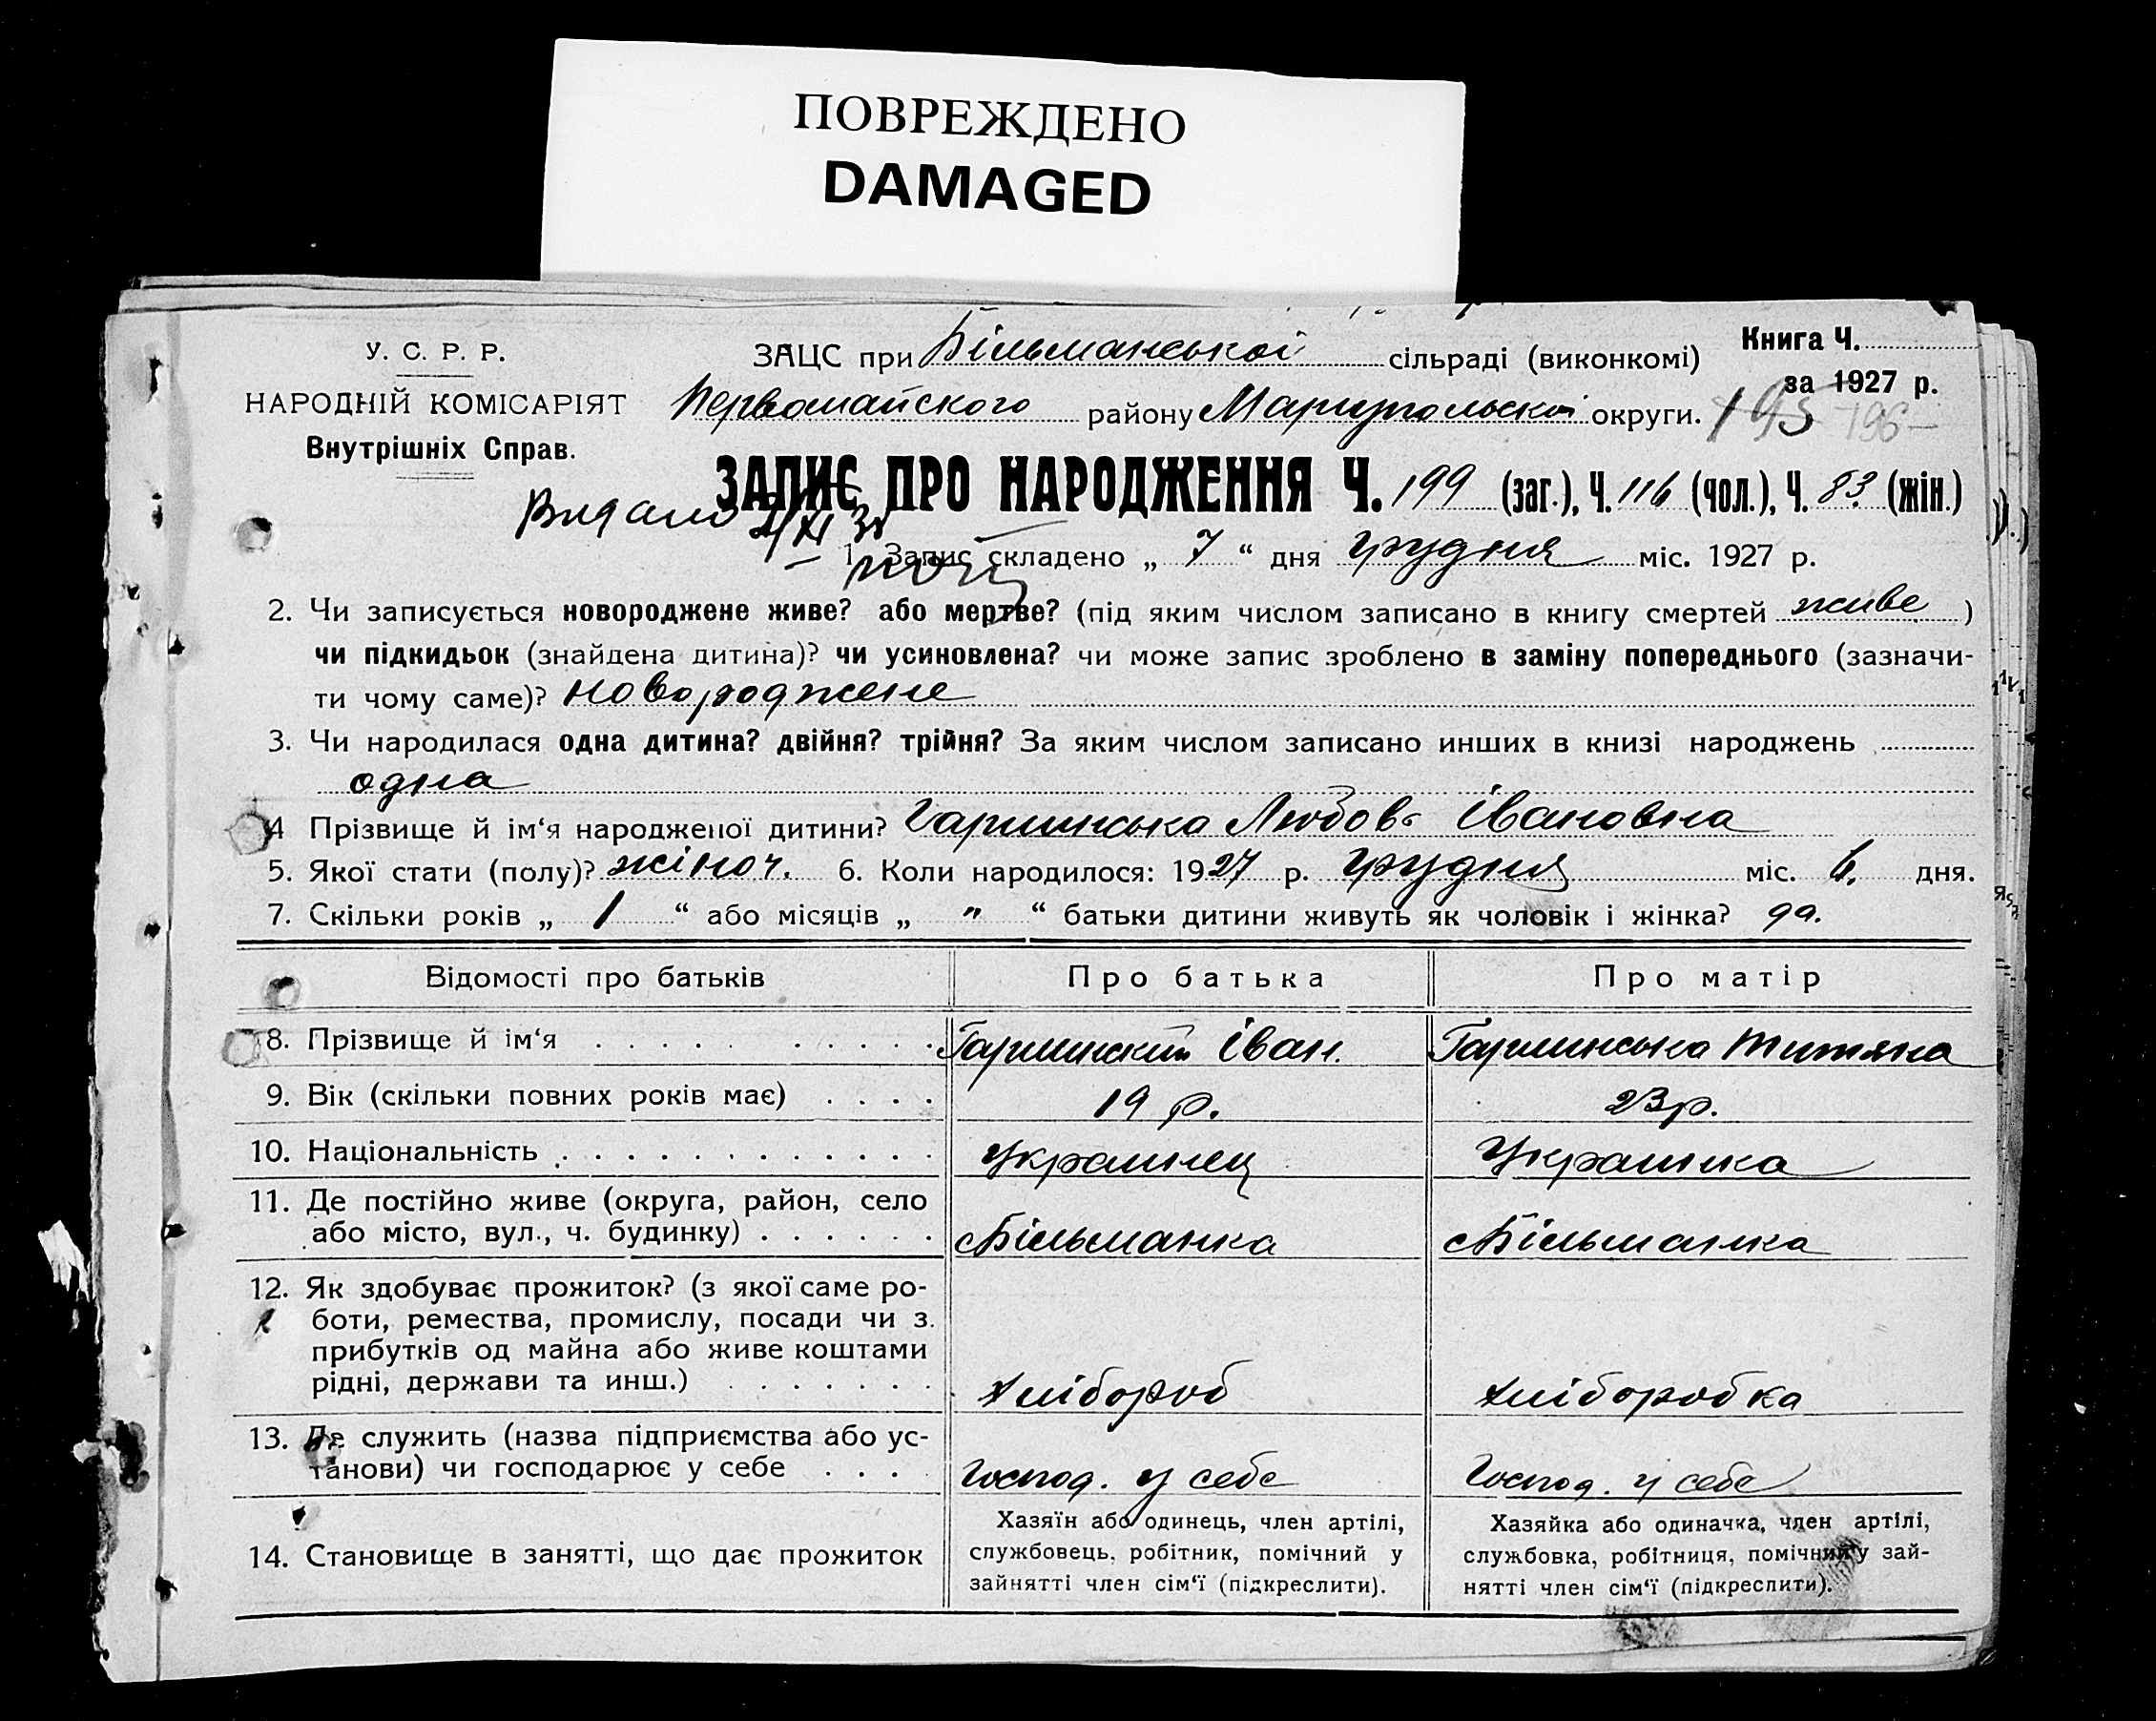 ПОВРЕЖДЕНО
DAMAGED
У. С. Р. Р.
НАРОДНІЙ КОМІСАРІЯТ
Внутрішніх Справ.
ЗАЦС при Більманської сільраді (виконкомі)
Книга Ч.
за 1927 р.
Первомайского району Мариупольської округи.
195 196
ЗАПИС ПРО НАРОДЖЕННЯ Ч. 199 (заг.), Ч. 116 (чол.), Ч. 83 (жін.)
Видано
1. Запис складено „ 7 “ дня Грудня міс. 1927 р.
2. Чи записується новороджене живе? або мертве? (під яким числом записано в книгу смертей живе )
чи підкидьок (знайдена дитина)? чи усиновлена? чи може запис зроблено в заміну попереднього (зазначи-
ти чому саме)? новороджене
3. Чи народилася одна дитина? двійня? трійня? За яким числом записано инших в книзі народжень
одна
4 Прізвище й ім‘я народженої дитини? Гаршинська Любовь Івановна
5. Якої стати (полу)? жіноч. 6. Коли народилося: 1927 р. Грудня міс. 6. дня.
7. Скільки років „ 1 “ або місяців „ " “ батьки дитини живуть як чоловік і жінка? да.
Відомості про батьків Про батька Про матір
8. Прізвище й ім‘я Гаршинский Іван. Гаршинська Титяна
9. Вік (скільки повних років має) 19 р. 23 р.
10. Національність Украинец Украинка
11. Де постійно живе (округа, район, село
або місто, вул., ч. будинку) Більманка Більманка
12. Як здобуває прожиток? (з якої саме ро-
боти, ремества, промислу, посади чи з
прибутків од майна або живе коштами
рідні, держави та инш.) хлібороб хліборобка
13. Де служить (назва підприємства або ус-
танови) чи господарює у себе Господ. у себе Господ. у себе
14. Становище в занятті, що дає прожиток
Хазяїн або одинець, член артілі,
службовець, робітник, помічний у
зайнятті член сім‘ї (підкреслити).
Хазяйка або одиначка, член артілі,
службовка, робітниця, помічний у зай-
нятті член сім‘ї (підкреслити).